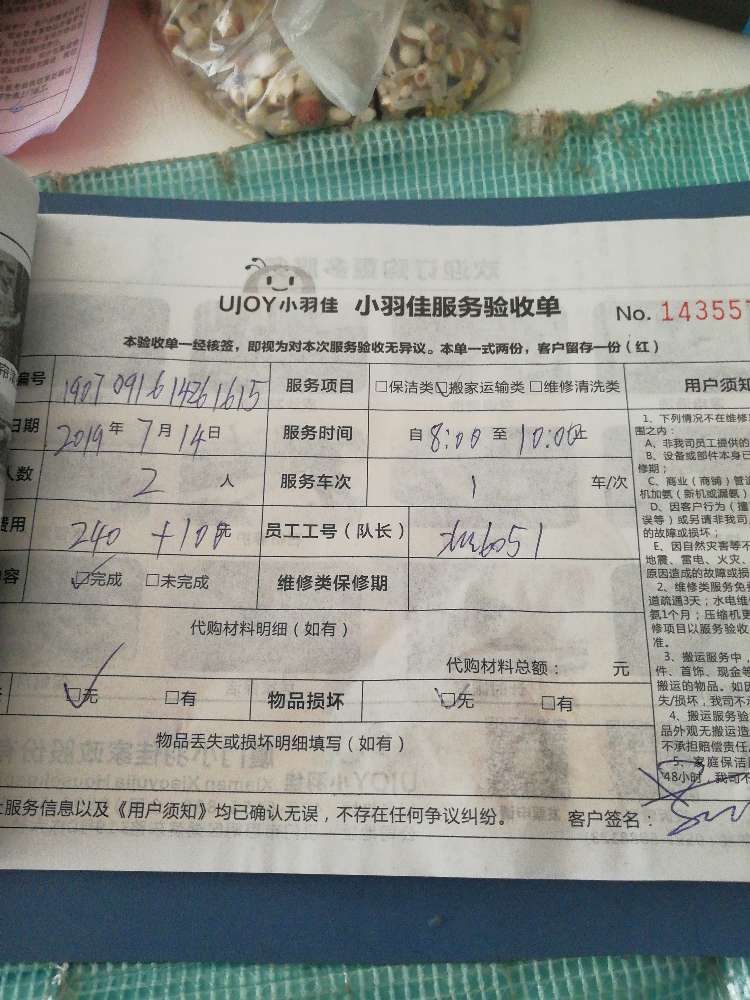 UJOY小羽佳 小羽佳服务验收单 No. 14355
本验收单一经核签，即视为对本次服务验收无异议。本单一式两份，客户留存一份（红）
编号 服务项目 □保洁类 □搬家运输类 □维修清洗类 用户须知
日期 2019年7月14日 服务时间 自 8:00 至 10:00止
人数 2 人 服务车次 1 车/次
费用 240 +100元 员工工号（队长） 6051
内容 □完成 □未完成 维修类保修期
代购材料明细（如有）
代购材料总额： 元
□无 □有 物品损坏 □无 □有
物品丢失或损坏明细填写（如有）
服务信息以及《用户须知》均已确认无误，不存在任何争议纠纷。 客户签名：
1、下列情况不在维修
围之内：
A、非我司员工提供的
B、设备或部件本身已
修期；
C、商业（商铺）管道
机加氨（新机或漏氨）
D、因客户行为（擅
误等）或另请非我司
的故障或损坏；
E、因自然灾害等不
地震、雷电、火灾、
原因造成的故障或损
2、维修类服务免费
道疏通3天；水电维
氨1个月；压缩机更
修项目以服务验收
准。
3、搬运服务中，
件、首饰、现金等
搬运的物品。如因
失/损坏，我司不承
4、搬运服务验
品外观无搬运造
不承担赔偿责任。
5、家庭保洁
48小时，我司不